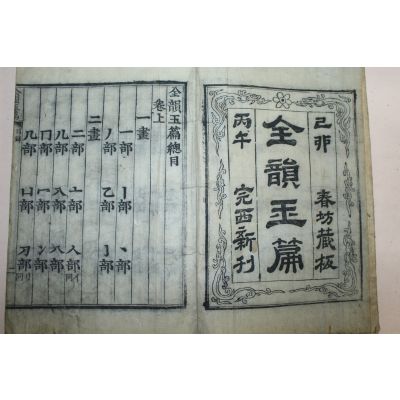 己卯 春坊藏板
全韻玉篇
丙午 完西新刊
全韻玉篇總目
卷上
一畫
一部 丨部 丶部
丿部 乙部 亅部
二畫
二部 亠部 人部
儿部 入部 八部
冂部 冖部 冫部
几部 凵部 刀部